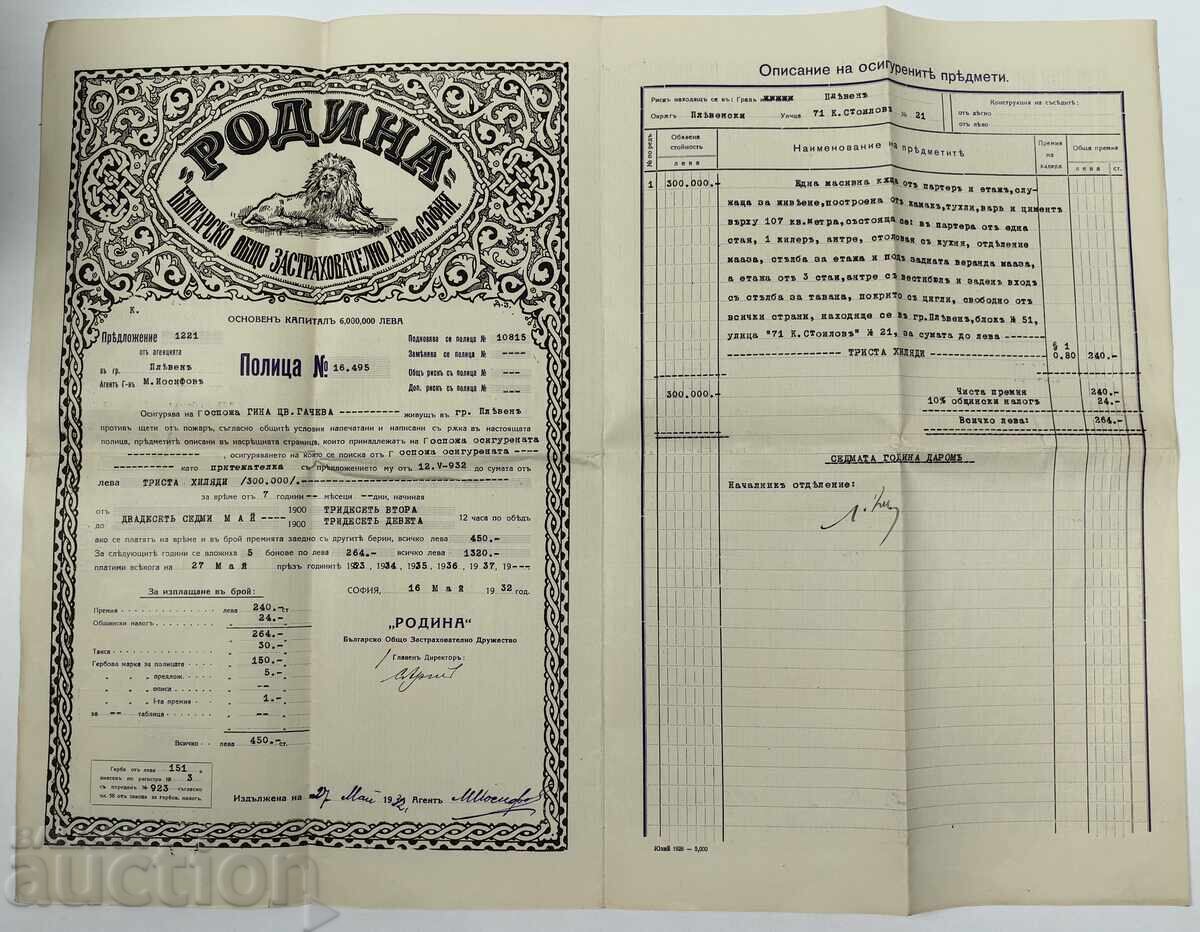 „РОДИНА“
БЪЛГАРСКО ОБЩО ЗАСТРАХОВАТЕЛНО Д-ВО въ СОФИЯ.
К.
Д-З.
ОСНОВЕНЪ КАПИТАЛЪ 6,000,000 ЛЕВА
Прѣдложение 1221
отъ агенцията
въ гр. Плѣвенъ
Агентъ Г-нъ М.Иосифовъ
Полица № 16.495
Подновява се полица № 10815
Замѣнява се полица „ ----
Общъ рискъ съ полиц. „ ---
Доп. рискъ съ полиц. „ ---
Осигурява на Госпожа ГИНА ЦВ.ГАЧЕВА ---------- живущъ въ гр. Плѣвенъ
противъ щети отъ пожаръ, съгласно общитѣ условия напечатани и написани съ ржка въ настоящата
полица, прѣдметитѣ описани въ насрѣщната страница, които принадлежатъ на Госпожа осигурената
-------------, осигуряването на което се поиска отъ Госпожа осигурената ----
----------- като притежателка съ прѣдложението му отъ 12.V-932 до сумата отъ
лева ТРИСТА ХИЛЯДИ /300.000/.------------------------
за врѣме отъ 7 години -- мѣсеци --дни, начиная
отъ
до ДВАДЕСЕТЬ СЕДМИ МАЙ ---- 1900 ТРИДЕСЕТЬ ВТОРА
1900 ТРИДЕСЕТЬ ДЕВЕТА 12 часа по обѣдъ
ако се платятъ на врѣме и въ брой премията заедно съ другитѣ берии, всичко лева 450.-
За слѣдующитѣ години се вложиха 5 бонове по лева 264.- всичко лева 1320.-
платими всѣкога на 27 Май прѣзъ годинитѣ 1933, 1934, 1935, 1936, 1937, 19---
За изплащане въ брой:
Премия лева 240.- ст.
Общински налогъ „ 24.- „
„ 264.- „
Такса „ 30.- „
Гербова марка за полицата „ 150.- „
„ „ „ предлож. „ 5.- „
„ „ „ описи „ -- „
„ „ „ I-та премия „ 1.- „
за -- таблица „ -- „
Всичко лева 450.- ст.
СОФИЯ, 16 Май 1932 год.
„РОДИНА“
Българско Общо Застрахователно Дружество
Главенъ Директоръ:
Герба отъ лева 151 „
внесенъ по регистра № 3
съ пореденъ № 923 съгласно
чл. 58 отъ закона за гербов. налогъ.
Издължена на 27 Май 1932 Агентъ МИосифовъ
Описание на осигуренитѣ прѣдмети.
Рискъ находящъ се въ: Градъ Плѣвенъ
Окрѫгъ Плѣвенски Улица 71 К.Стоиловъ № 21
Конструкция на съседитѣ:
отъ дѣсно
отъ лѣво
№ по редъ
Обявена стойность
лева
Наименование на прѣдметитѣ
Премия на хиляда
Обща премия
лева ст.
1 300.000.- Една масивна кѫща отъ партеръ и етажъ, слу-
жаща за живѣене, построена отъ камакъ, тухли, варь и циментъ
върху 107 кв.метра, състояща се: въ партера отъ една
стая, 1 килеръ, антре, столовая съ кухня, отдѣление
мааза, стълба за етажа и подъ задната веранда мааза,
а етажа отъ 3 стаи, антре съ вестибюлъ и заденъ входъ
съ стълба за тавана, покрито съ цигли, свободно отъ
всички страни, находяще се въ гр.Плѣвенъ, блокъ № 51,
улица "71 К.Стоиловъ" № 21, за сумата до лева -------
----------------ТРИСТА ХИЛЯДИ---------------- § 1 0.80 240.-
300.000.- Чиста премия 240.-
10% общински налогъ 24.-
Всичко лева: 264.-
СЕДМАТА ГОДИНА ДАРОМЪ
Началникъ отдѣление:
Юлий 1928 — 5,000
auction